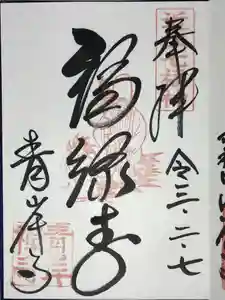 奉拝
令三・二・七
福禄寿
青岸寺